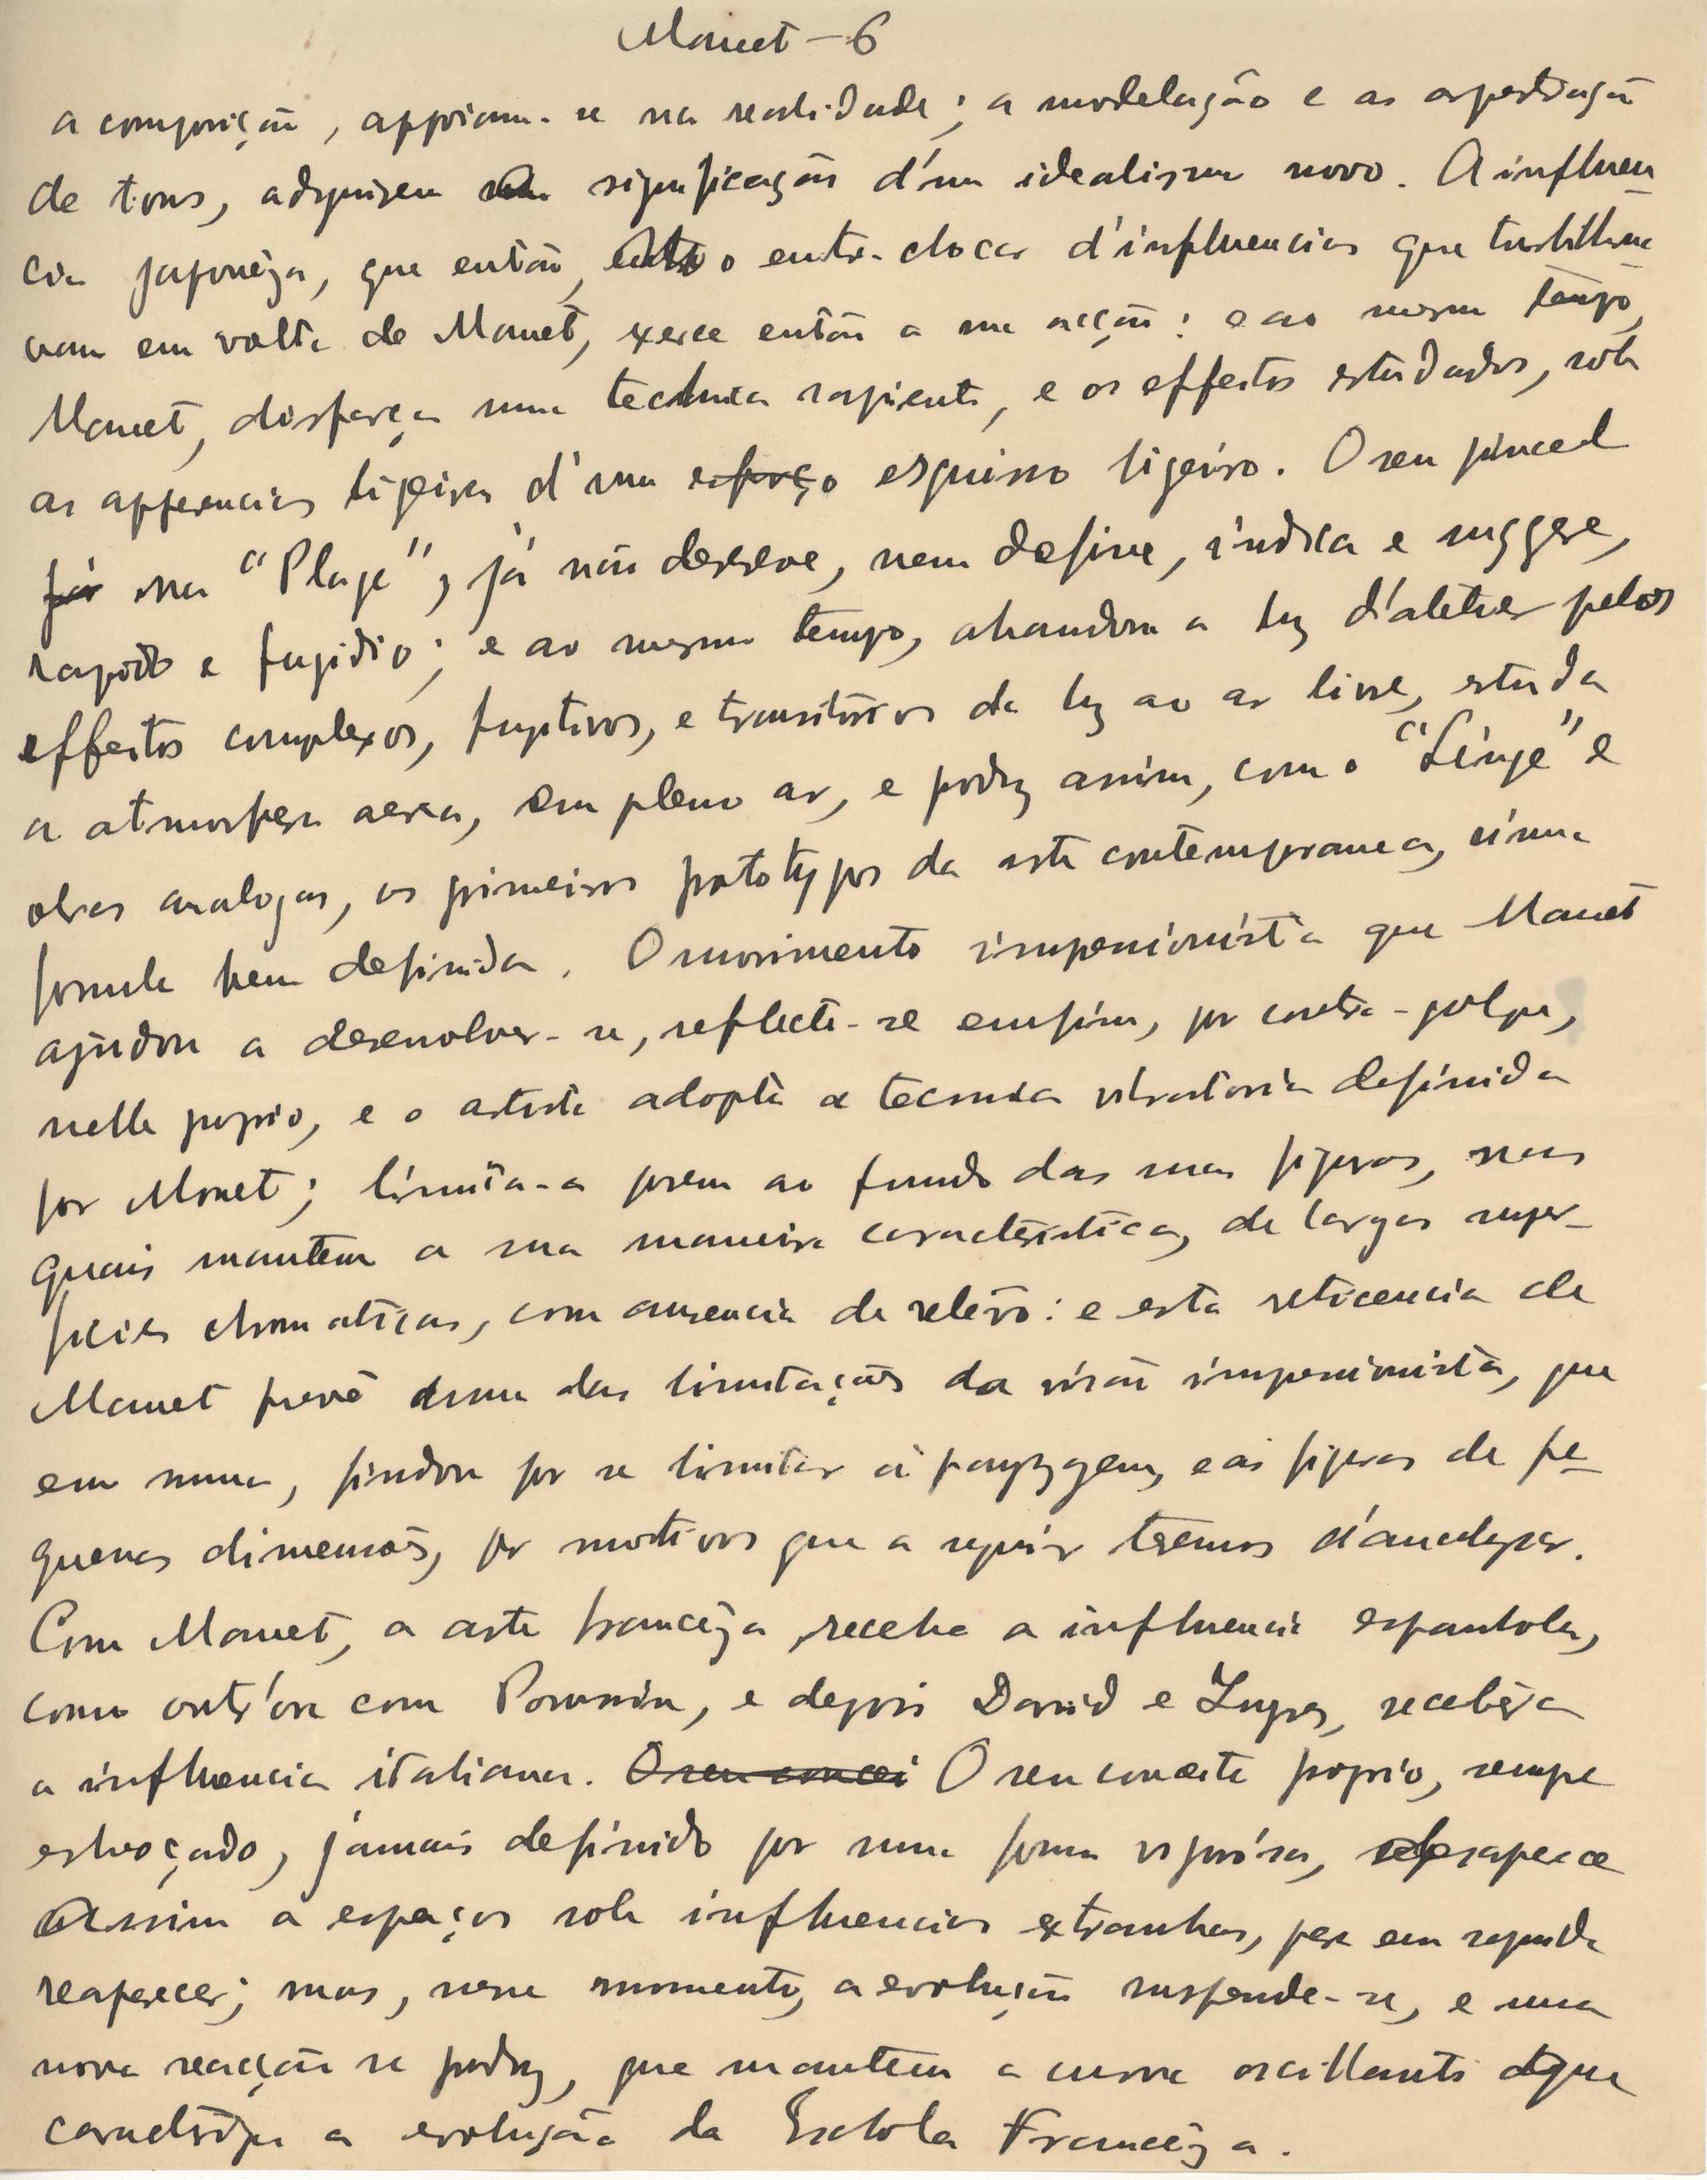 Manet – 6
a composição, appoiam-se na realidade; a modelação e as
de tons, adquirem significação d'um idealismo novo. A influen-
cia japonêza, que então, o entre-chocar d'influencias que turbilhona-
vam em volta de Manet, exerce então a sua acção: e ao mesmo tempo,
Manet, disfarça uma technica sapiente, e os effeitos estudados, sob
as apparencias ligeiras d'um esforço esquisso ligeiro. O seu pincel
já na "Plage", já não descreve, nem define, indica e suggere,
rapido e fugidio; e ao mesmo tempo, abandona a luz d'atelier pelos
effeitos complexos, fugitivos, e transitórios da luz ao ar livre, estuda
a atmosfera aerea, em pleno ar, e produz assim, com o "Linge" e
obras analogas, os primeiros prototypos da arte contemporanea, n'uma
formula bem definida. O movimento impressionista que Manet
ajudou a desenvolver-se, reflecte-se emfim, por contra-golpe,
nelle proprio, e o artista adopta a tecnica vibratoria definida
por Monet; limita-a porem ao fundo das suas figuras, nas
quais mantem a sua maneira caracteristica, de largas super-
ficies chromaticas, com ausencia de relêvo: e esta reticencia de
Manet prevê uma das limitações da visão impressionista, que
em suma, findou por se limitar á payzagem, e ás figuras de pe-
quenas dimensões, por motivos que a seguir teremos d'analysar.
Com Manet, a arte francêza recebe a influencia espanhola,
como outr'ora com Poussin, e depois David e Ingres, recebêra
a influencia italiana. O seu concei O seu conceito proprio, sempre
esboçado, jámais definido por uma forma vigorósa, desaparece
assim a espaços sob influencias extranhas, para em seguida
reaparecer; mas, nesse momento, a evolução suspende-se, e uma
nova reacção se produz, que mantem a curva oscillante que
caracteriza a evolução da Escola Francêza.